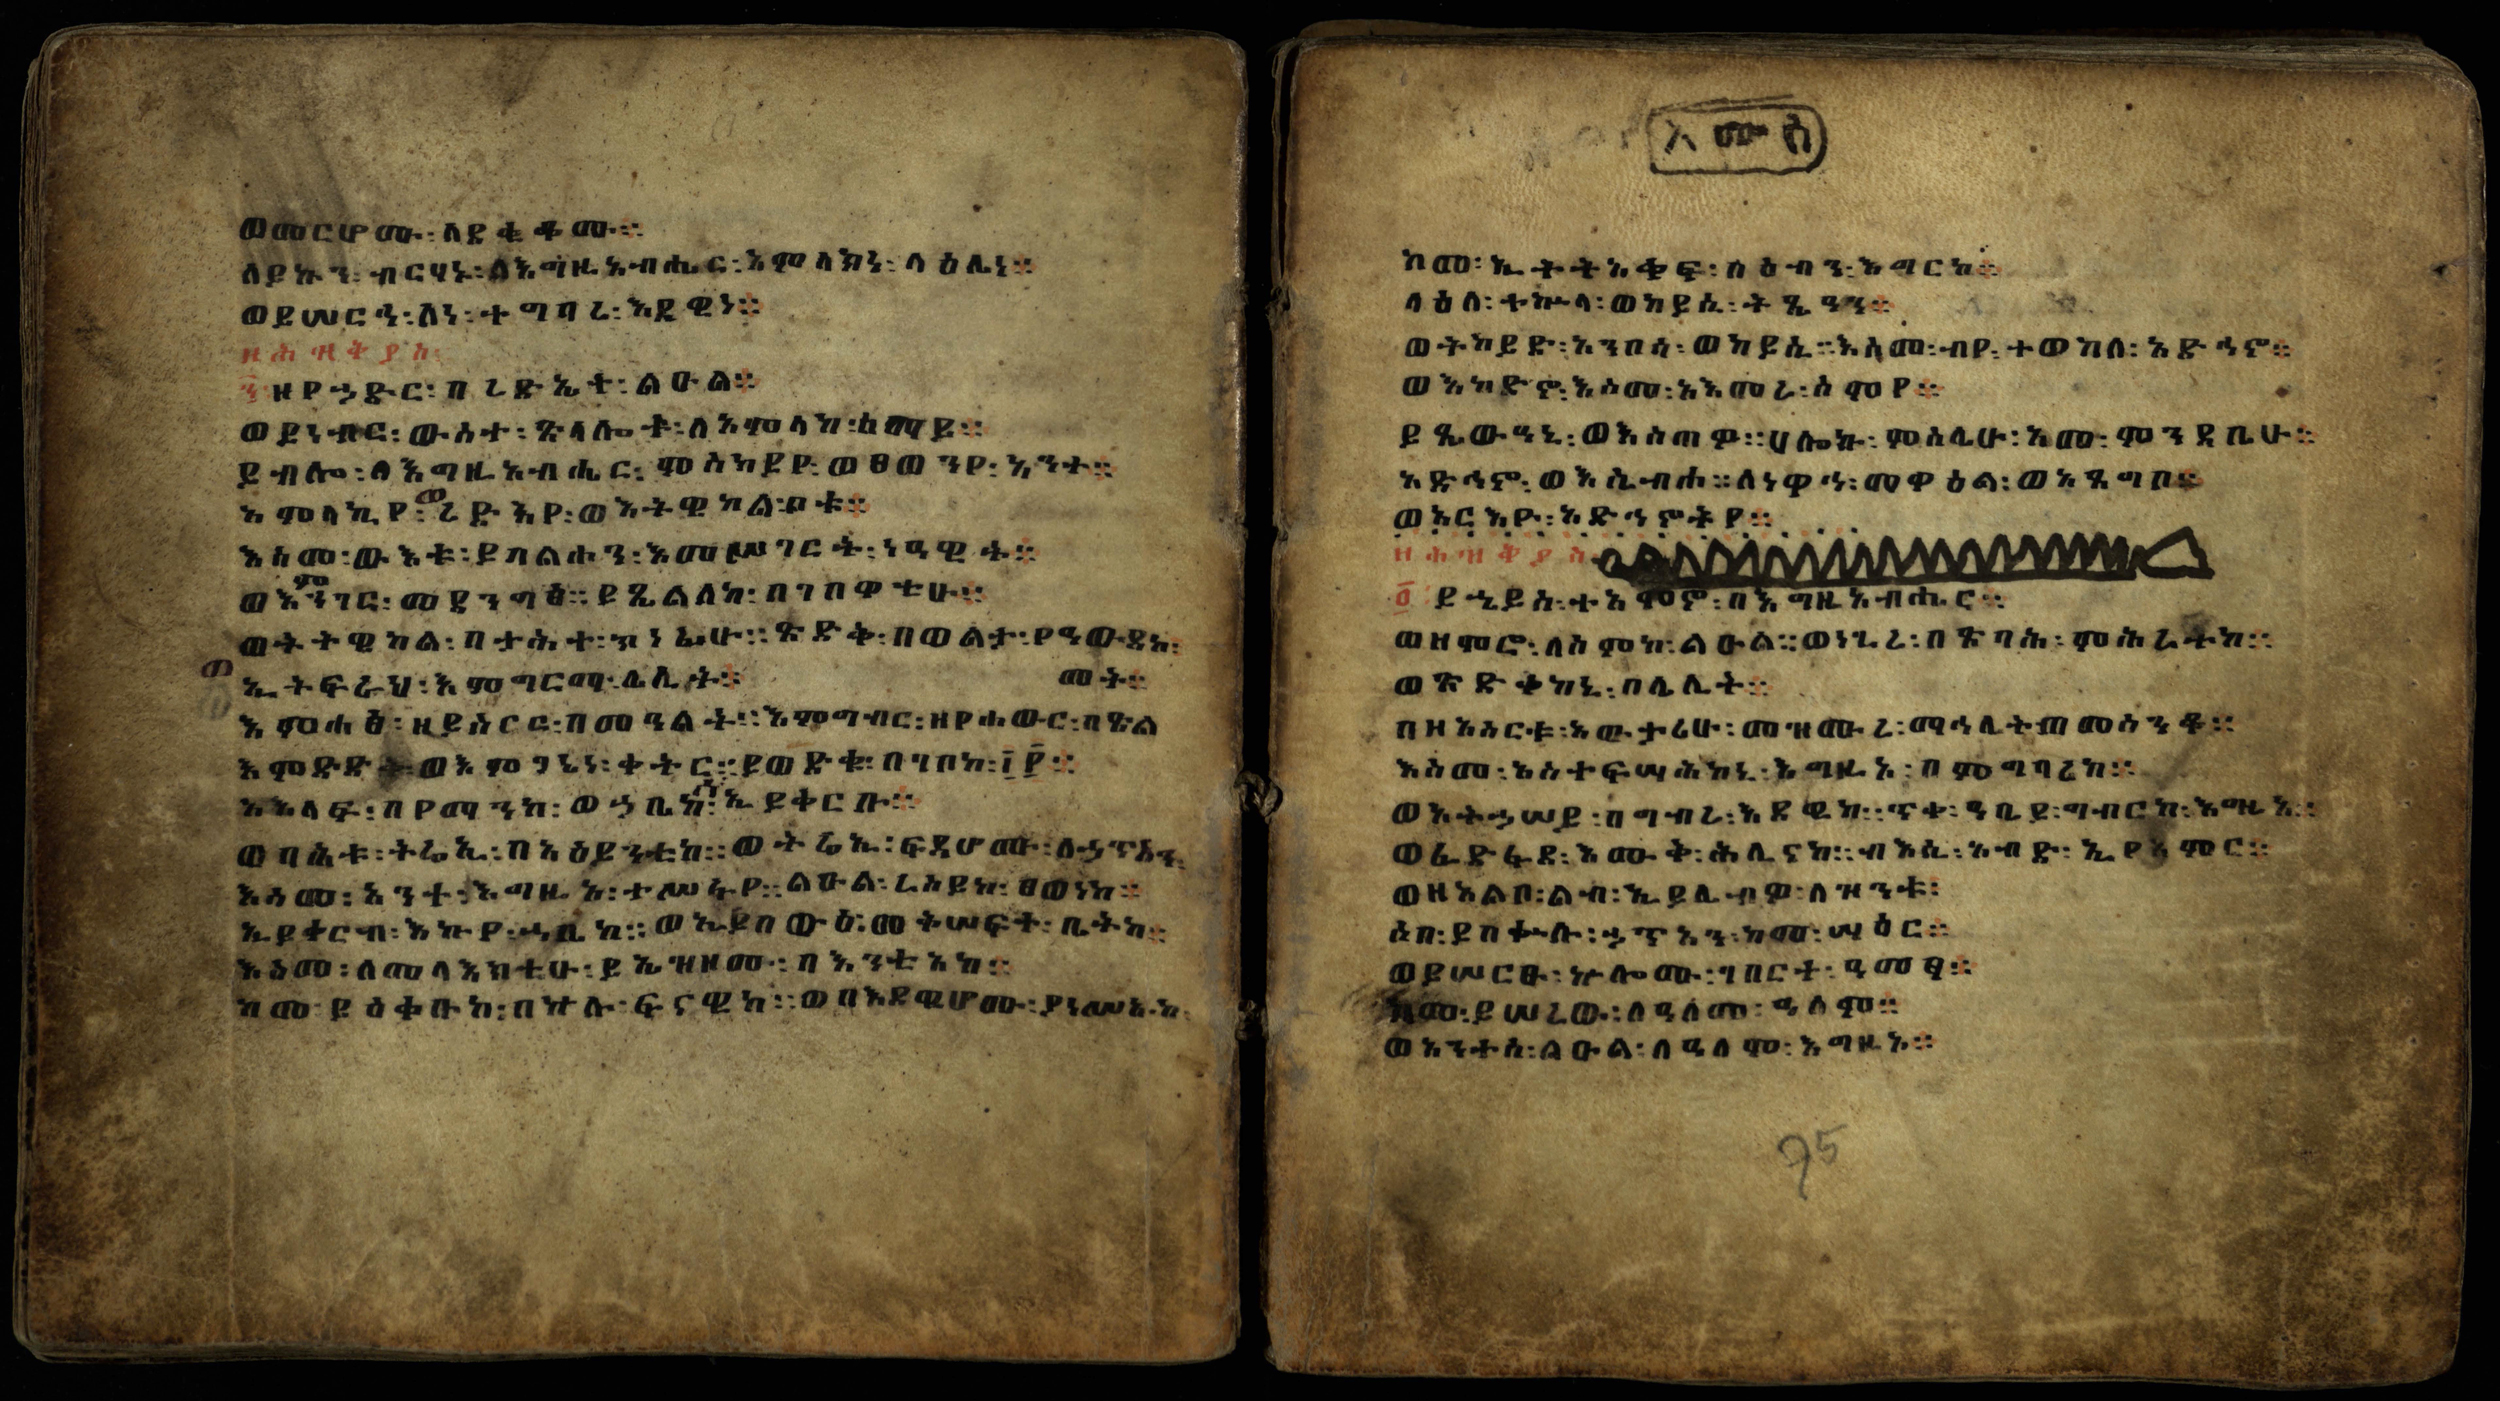 ወመርሆሙ፡ለደቂቆሙ።
ለይኩን፡ብርሃኑ፡ለእግዚአብሔር፡አምላክነ፡ላዕሌነ።
ወይሠርሕ፡ለነ፡ተግባረ፡እደዊነ።
ዘሕዝቅያስ
፺ዘየኀድር፡በረድኤተ፡ልዑል።
ወይነብር፡ውስተ፡ጽላሎቱ፡ለአምላክ፡ሰማይ።
ይብሎ፡ለእግዚአብሔር፡ምስካይየ፡ወፀወንየ፡አንተ።
አምላኪየ፡ወረድእየ፡ወእትዊከል፡ቦቱ።
እስመ፡ውእቱ፡ይባልሐኒ፡እመሥገርት፡ነዓዊት።
ወእምነገር፡መደንግፅ።ይጼልለከ፡በገበዋቲሁ።
ወትትዊከል፡በታሕተ፡ክነፊሁ።ጽድቅ፡በወልታ፡የዓውደከ፡
ኢትፍራህ፡እምግርማ፡ሌሊት። መት።
እምሐፅ፡ዘይሰርር፡በመዓልት።እምግብር፡ዘየሐውር፡በጽል
እምድድቅ፡ወእምጋኔነ፡ቀትር።ይወድቁ፡በገቦከ፡፲፻።
አእላፍ፡በየማንከ፡ወኀቤከሰ፡ኢይቀርቡ።
ወባሕቱ፡ትሬኢ፡በአዕይንቲከ።ወትሬኢ፡ፍዳሆሙ፡ለኃጥአን
እስመ፡አንተ፡እግዚአ፡ተሠፋየ።ልዑል፡ረሰይከ፡ፀወነከ።
ኢይቀርብ፡እኩየ፡ኀቤከ።ወኢይበውዕ፡መቅሠፍተ፡ቤትከ።
እስመ፡ለመላእክቲሁ፡ይኤዝዞሙ፡በእንቲአከ።
ከመ፡ይዕቀቡከ፡በኵሉ፡ፍናዊከ።ወበእደዊሆሙ፡ያነሥኡከ፡
አሙስ
ከመ፡ኢትትአቀፍ፡በዕብን፡እግርከ።
ላዕለ፡ተኵላ፡ወከይሲ፡ትጼዓን።
ወትከይድ፡አንበሳ፡ወከይሲ።እስመ፡ብየ፡ተወከለ፡አድኅኖ።
ወእከድኖ፡እስመ፡አእመረ፡ስምየ።
ይጼውዓኒ፡ወእሰጠዎ።ሀሎኩ፡ምስሌሁ፡አመ፡ምንዳቤሁ።
አድኅኖ፡ወእሴብሖ።ለነዋኅ፡መዋዕል፡ወአጸግቦ።
ወእርእዮ፡አድኅኖትየ።
ዘሕዝቅያስ
፺፩ ይኄይስ፡ተአምኖ፡በእግዚአብሔር።
ወዘምሮ፡ለስምከ፡ልዑል።ወነጊረ፡በጽባሕ፡ምሕረተከ።
ወጽድቀከኒ፡በሌሊት።
በዘአሰርቱ፡አውታሪሁ፡መዝሙረ፡ማኅሌት፡ወመሰንቆ።
እስመ፡አስተፍሣሕከኒ፡እግዚኦ፡በምግባሪከ።
ወእትኃሠይ፡በግብረ፡እደዊከ።ጥቀ፡ዓቢይ፡ግብርከ፡እግዚኦ።
ወፈድፋደ፡እሙቅ፡ሕሊናከ።ብእሲ፡አብድ፡ኢየአምር።
ወዘአልቦ፡ልብ፡ኢይሌብዎ፡ለዝንቱ፡
ሶበ፡ይበቍሉ፡ኃጥአን፡ከመ፡ሣዕር።
ወይሠርፁ፡ኵሎሙ፡ገበርተ፡ዓመፃ።
ከመ፡ይሠረው፡ለዓለመ፡ዓለም።
ወአንተሰ፡ልዑል፡ለዓለም፡እግዚኦ።
95